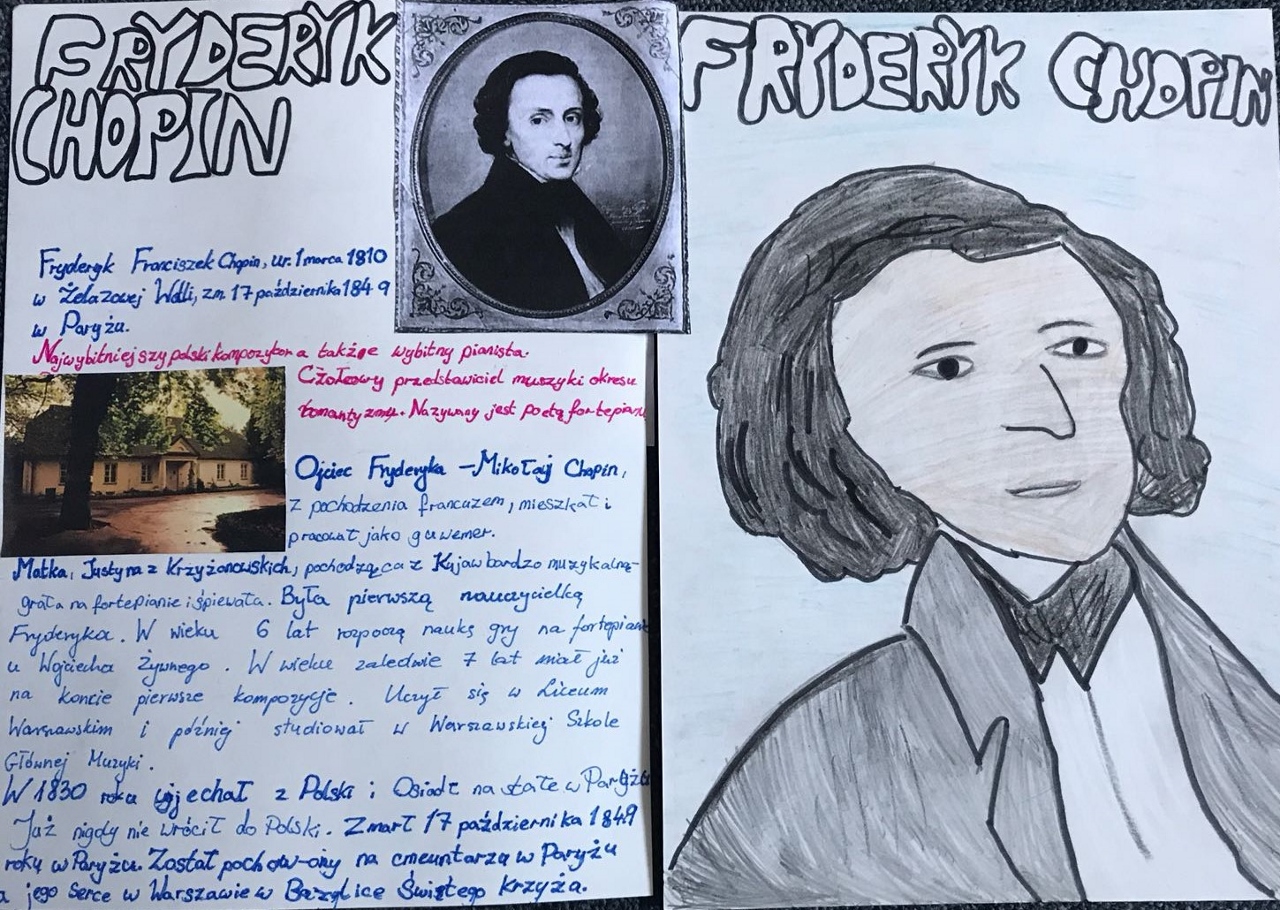 FRYDERYK
CHOPIN
Fryderyk Franciszek Chopin, ur. 1 marca 1810
w Żelazowej Woli, zm. 17 października 1849
w Paryżu.
Najwybitniejszy polski kompozytor a także wybitny pianista.
Czołowy przedstawiciel muzyki okresu
romantyzmu. Nazywany jest poetą fortepianu
Ojciec Fryderyka – Mikołaj Chopin,
z pochodzenia francuzem, mieszkał i
pracował jako guwerner.
Matka, Justyna z Krzyżanowskich, pochodząca z Kujaw bardzo muzykalna-
grała na fortepianie i śpiewała. Była pierwszą nauczycielką
Fryderyka. W wieku 6 lat rozpoczą naukę gry na fortepianie
u Wojciecha Żywnego. W wieku zaledwie 7 lat miał już
na koncie pierwsze kompozycje. Uczył się w Liceum
Warszawskim i później studiował w Warszawskiej Szkole
Głównej Muzyki.
W 1830 roku wyjechał z Polski i Osiadł na stałe w Paryżu
Już nigdy nie wrócił do Polski. Zmarł 17 października 1849
roku w Paryżu. Został pochow-ony na cmeuntarza w Paryżu
a jego serce w Warszawie w Bazylice Świętego Krzyża.
FRYDERYK CHOPIN